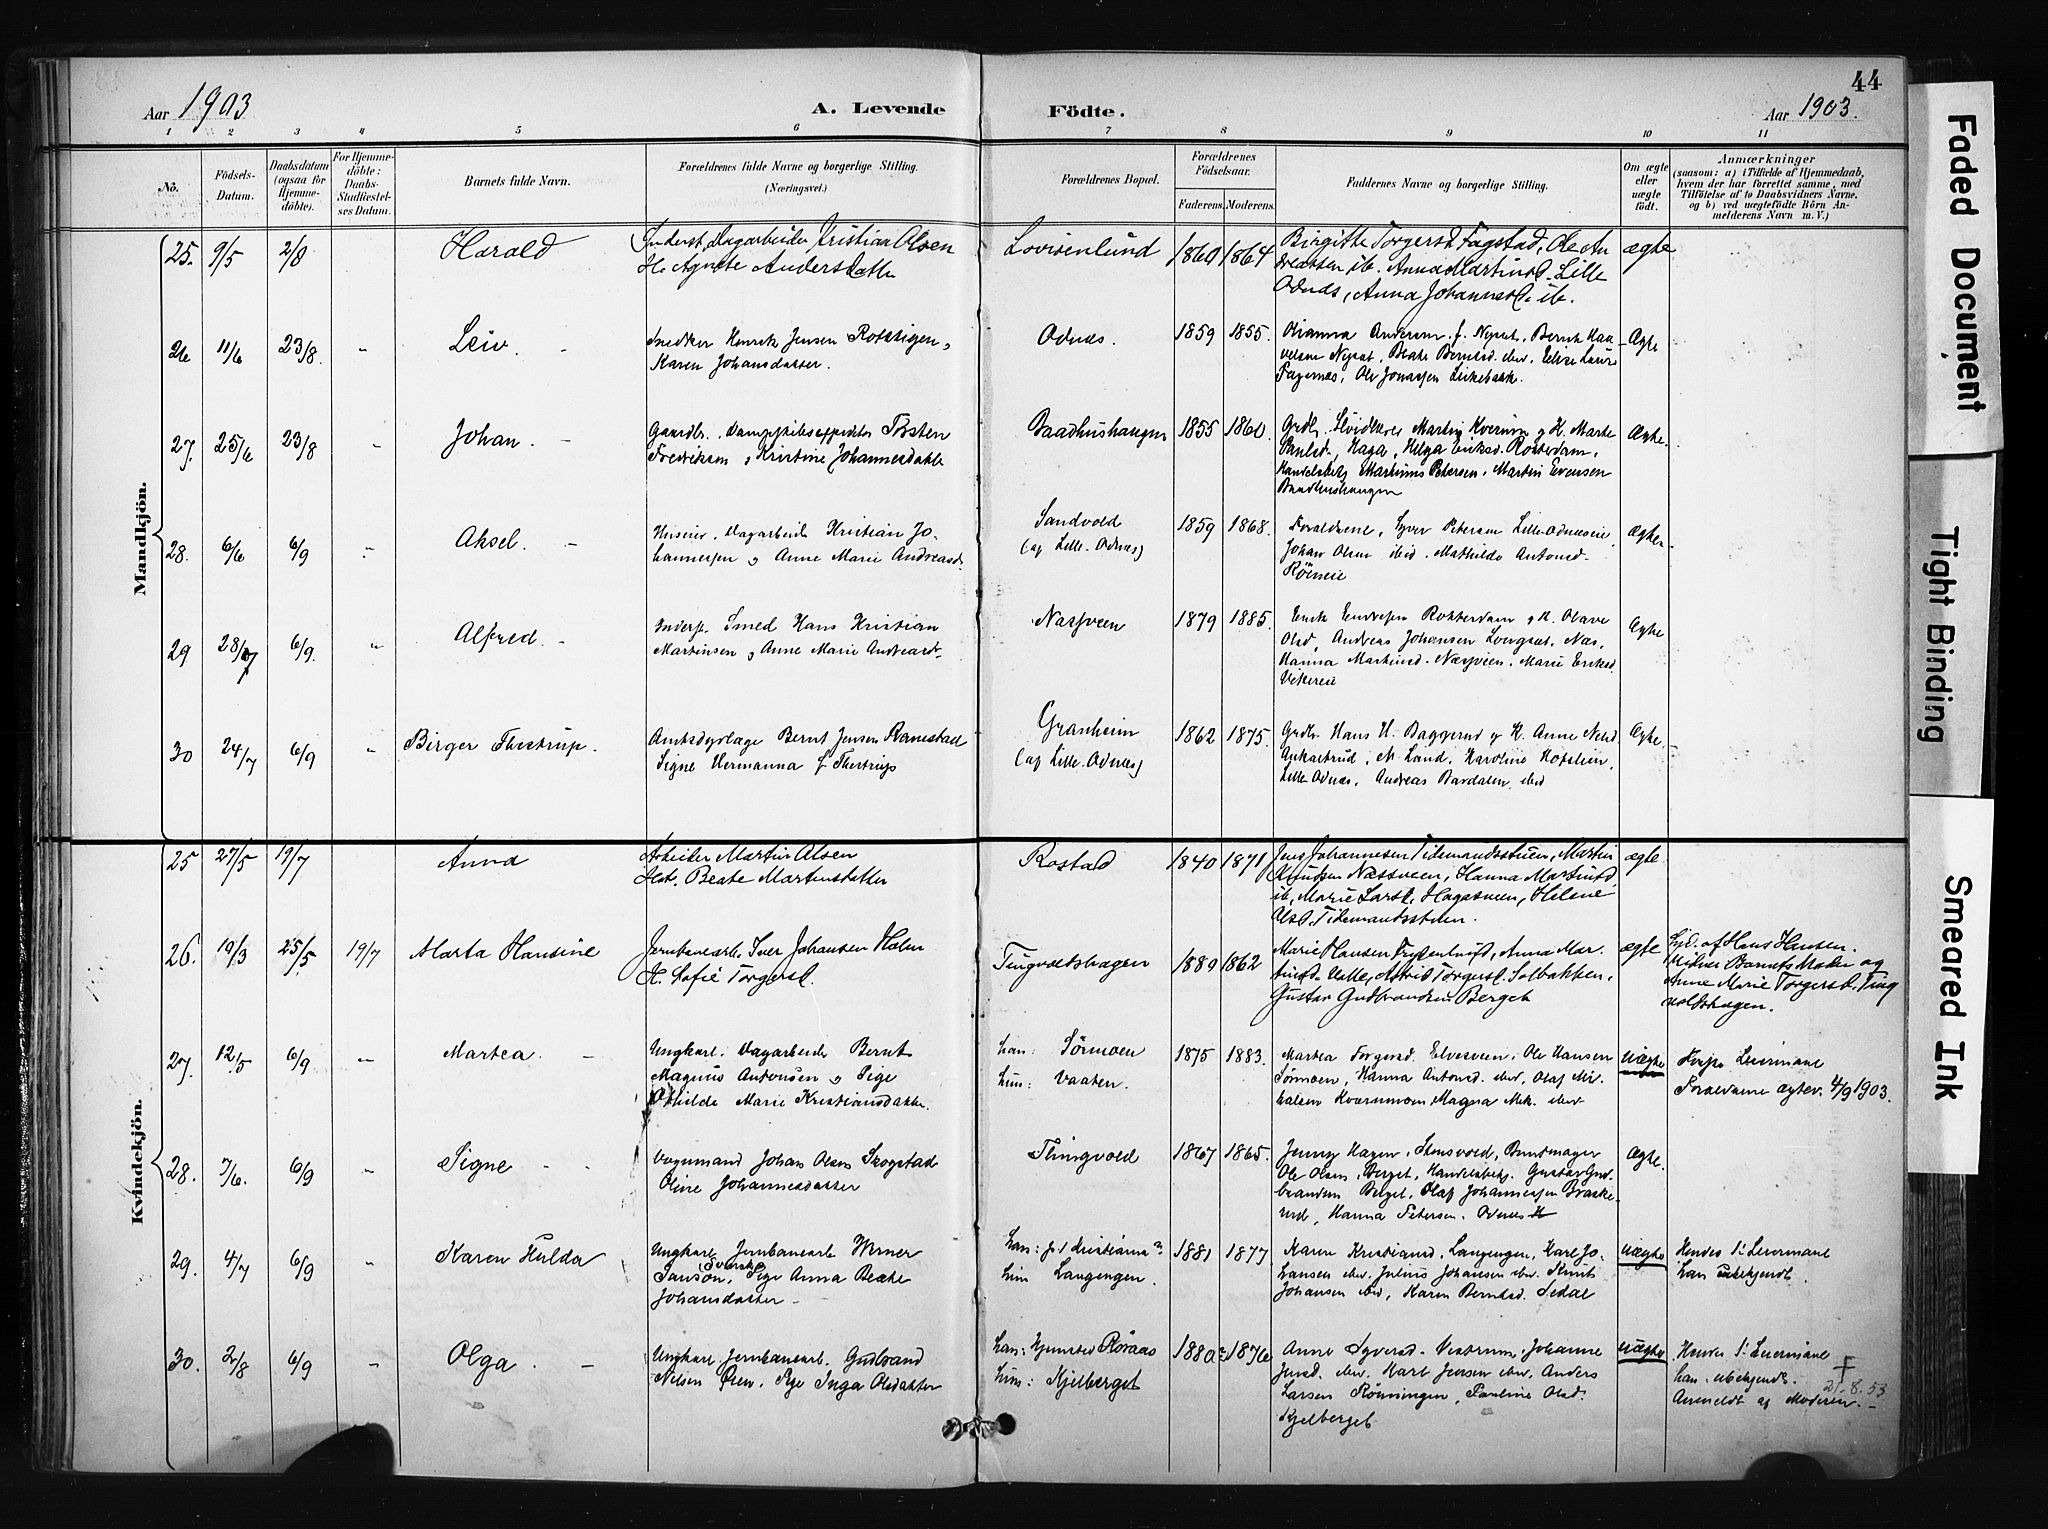 44
Aar 1903
A. Levende Födte.
Aar 1903.
1 2 3 4 5 6 7 8 9 10 11
No.
Födsels-Datum.
Daabsdatum (ogsaa for Hjemme-döbte).
For Hjemme-döbte: Daabs-Stadfæstel-ses Datum.
Barnets fulde Navn.
Forældrenes fulde Navne og borgerlige Stilling.
(Næringsvei.)
Forældrenes Bopæl.
Forældrenes Födselsaar.
Faderens. Moderens.
Faddernes Navne og borgerlige Stilling.
Om ægte eller uægte födt.
Anmærkninger
(saasom: a) i Tilfælde af Hjemmedaab,
hvem der har forrettet samme, med
Tilföielse af to Daabsvidners Navne,
og b) ved uægtefödte Börn An-
melderens Navn m. V.)
Mandkjön.
25. 9/5 2/8 Harald
Inderst, Dagarbeider Kristian Olsen
H. Agnete Andersdatter
Lovisenlund 1860 1864
Birgitte Torgersd. Fagstad, Ole An
dreassen ib. Anna Martinsd. Lille
Odnæs, Anna Johannesd. ib.
ægte
26 11/6 23/8. " Leiv. -
Snedker Henrik Jensen Rotstigen,
Karen Johansdatter.
Odnæs. 1859 1855.
Andersen. f. Nysæt, Bernt Haa
velsen Nysæt, Beate Berntsd. ibid.
Fagernæs, Ole Jonassen Lirkebakk.
Ægte
27. 25/6 23/8 " Johan. -
Gaardbr. Torsten
Fredriksen og Kristine Johannesdatter
Baadhushaugen 1855 1860.
Grdbr. Martin Kvernum og K. Marte
Paulsd., Haga, Helga Eriksd. Rotterdam,
Handelsbetj. Martinius Petersen, Martin Evensen
Baadhushaugen
Ægte.
28. 6/6 6/9 " Aksel. -
Huseier, Dagarbeider Kristian Jo-
hannessen og Anne Marie Andreasd.
Sandvold
(af Lille-Odnæs)
1859 1868.
Forældrene, Syver Petersen Lille-Odnæseie,
Johan Olsen ibid. Mathilde Antonsd.
Röineie
Ægte.
29 28/7 6/9. " Alfred. -
Inderst. Smed Hans Kristian
Martinsen og Anne Marie Andreasd.
Næsveen 1879 1885.
Erik Endresen Rotterdam og K. Olave
Olsd, Andreas Johansen Lövgsæt, Næs,
Hanna Martinsd. Næsveen, Marie Eriksd.
Vekereie
Ægte
30 24/7 6/9 " Birger Thestrup.
Amtsdyrlæge Bernt Jensen Ramstad
Signe Hermanna f. Thestrup
Granheim
(af Lille-Odnæs)
1862 1875.
Grdbr. Hans H. Baggerud og K. Anne Nilsd
Ankartrud, N. Land, Karoline Hofslien,
Lille Odnæs, Andreas Bardalen ibid
Ægte.
Kvindekjön.
25 27/5 19/7 Anna
Arbeider Martin Olsen
Hst. Beate Martinsdatter
Rostad 1840 1871
Jens Johannesen Tidemandsstuen, Martin
Knudsen Næssveen, Hanna Martinsd
ib, Marie Larsd. Hagasveen, Helene
Olsd. Tidemandsstuen.
ægte
26. 19/3 25/5 19/7 Marta Hansine
Jernbanearb. Iver Johansen Holen
H. Sofie Torgersd.
Tingvoldshagen 1889 1862
Marie Hansen Frydenlund, Anna Mar-
tinsd. Valle, Astrid Torgersd. Solbakken,
Gustav Gudbrandsen Berget
ægte
Hjd. af Hans Hansen.
Vidner Barnets Moder og
Anne Marie Torgersd. Ting
voldshagen.
27. 12/5 6/9 " Martea. -
Ungkarl. Dagarbeider Bernt
Magnus Antonsen og Pige
Othilde Marie Kristiansdatter.
han: Sörmoen
hun: Vaaten.
1875 1883.
Martea Torgersd. Elvesveen, Ole Hansen
Sörmoen, Hanna Antonsd. ibid, Olaf Mi-
kalsen Kværnmoen, Magna Mik. ibid
uægte
Leiermaal
Forældrene ægtev. 4/9 1903.
28. 7/6. 6/9 " Signe - -
Vognmand Johan Olsen Skogstad
Oline Johannesdatter
Thingvold 1867 1865.
Jenny Hagen, Stensvold, Buntmager
Ole Olsen, Berget, Handelsbetj. Gustav Gud-
brandsen Berget, Olaf Johannessen Braske-
rud, Hanna Petersen. Odnæs
Ægte.
29. 4/7 6/9 " Karen Hulda
Ungkarl Jernbanearb. Werner
Janson, (Svensk) Pige Anna Beate
Johansdatter -
han: f. t. Kristiania?
hun Langengen.
1881 1877
Karen Kristiansd., Langengen, Karl Jo-
hansen ibid, Julius Johansen ibid. Knut
Johansen ibid, Karen Berntsd. Sedal
uægte
Hendes 1ste Leiermaal
han ubekjendt.
30. 2/8 6/9 " Olga. -
Ungkarl Jernbanearb. Gudbrand
Nilsen Ören. Pige Inga Olsdatter
han: Hjemsted Röraas
hun: Kjelberget
1880? 1876
Anne Syversd. Vestrum, Johanne
Jensd. ibid. Karl Jensen ibid. Anders
Larsen Rönningen, Pauline Olsd.
Kjelberget
uægte
Hendes 1ste Leiermaal
han: ubekjendt.
Anmeldt af Moderen.
† 21.8.53
Faded Document
Tight Binding
Smeared Ink